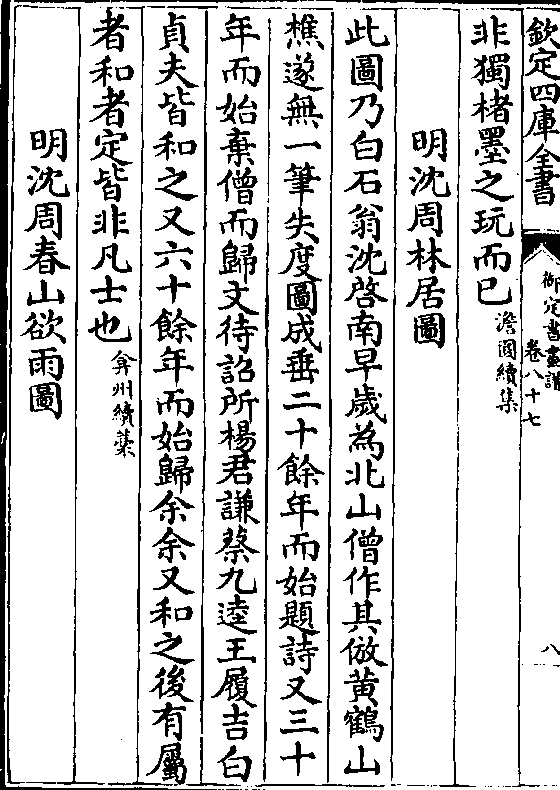 欽定四庫全書
御定書畫譜
卷八十七
八
非獨楮墨之玩而已澹園續集
明沈周林居圖
此圖乃白石翁沈啓南早歲為北山僧作其倣黄鶴山
樵遂無一筆失度圖成垂二十餘年而始題詩又三十
年而始棄僧而歸文待詔所楊君謙蔡九逵王履吉白
貞夫皆和之又六十餘年而始歸余余又和之後有屬
者和者定皆非凡士也弇州續藁
明沈周春山欲雨圖